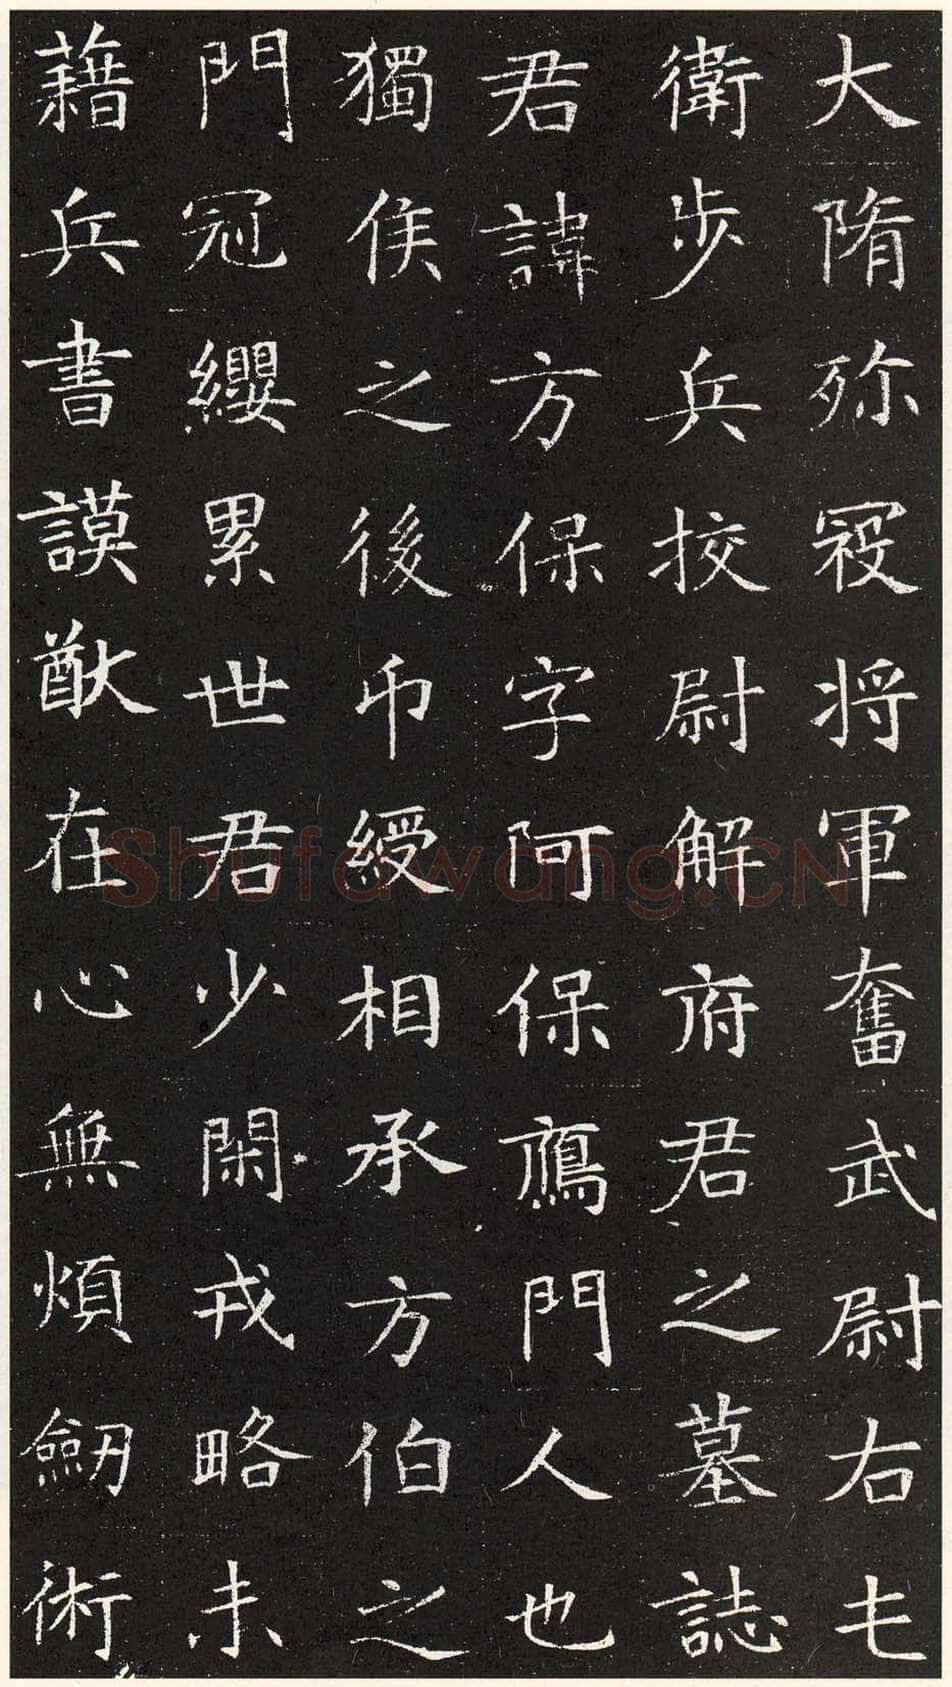 大隋殄寇将軍奮武尉右屯
衛步兵挍尉解府君之墓誌
君諱方保字阿保鴈門人也
獨侯之後印綬相承方伯之
門冠纓累世君少閑戎略未
藉兵書謨猷在心無煩劒術
Shufawang.CN